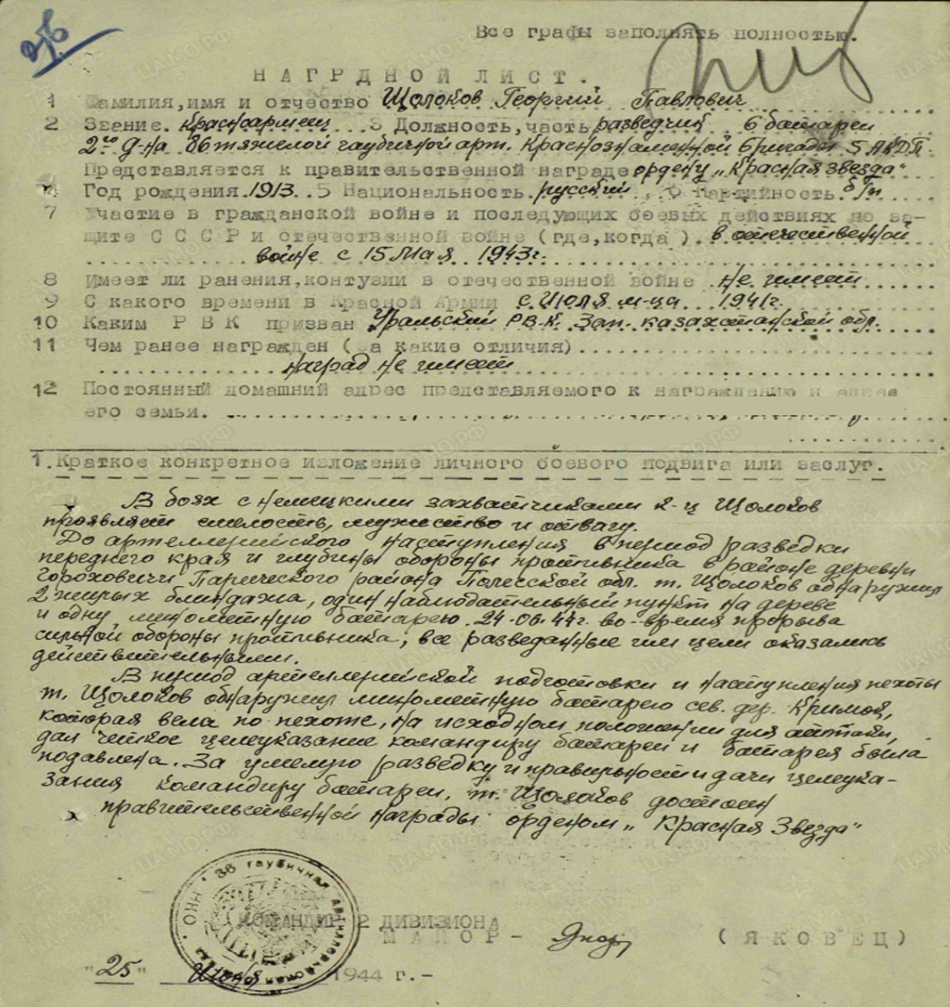 276
Все графы заполнять полностью.
НАГРДНОЙ ЛИСТ.
1 Фамилия,имя и отчество Щолоков Георгий Павлович
2 Звание. красноармеец 3 Должность,часть разведчик 6 батареи
2го д-на 86 тяжелой гаубичной арт. Краснознаменной бригады 5 АКДП
Представляется к правительственной награде ордену „Красная звезда"
4 Год рождения.1913. 5 Национальность. русский, 6 Партийность. б/п
7 Участие в гражданской войне и последующих боевых действиях по за-
щите СССР и отечественной войне (где,когда). в отечественной
войне с 15 мая 1943г.
8 Имеет ли ранения,контузии в отечественной войне не имеет
9 С какого времени в Красной Армии с июля м-ца 1941г.
10 Каким РВК призван Уральский РВК. Зап. казахстанской обл.
11 Чем ранее награжден (за какие отличия)
наград не имеет
12 Постоянный домашний адрес представляемого к награждению и адрес
его семьи.
1.Краткое конкретное изложение личного боевого подвига или заслуг.
В боях с немецкими захватчиками к-ц Щолоков
проявляет смелость, мужество и отвагу.
До артеллерийского наступления в период разведки
переднего края и глубины обороны противника в районе деревни
Гороховичи Паричского района Полесской обл. т. Щолоков обнаружил
2 жилых блиндажа, один наблюдательный пункт на дереве
и одну минометную батарею. 24-06-44г. во-время прорыва
сильной обороны противника, все разведанные им цели оказались
действительными.
В период артеллерийской подготовки и наступления пехоты
т. Щолоков обнаружил минометную батарею сев. дер. Кримок,
которая вела по пехоте, на исходном положении для аттаки,
дал четкое целеуказание командиру батареи и батарея была
подавлена. За умелую разведку и правильность дачи целеука-
зания командиру батареи, т. Щолоков достоин
правительственной награды орденом „Красная Звезда"
КОМАНДИР 2 ДИВИЗИОНА
МАЙОР - (ЯКОВЕЦ)
"25" июня 1944 г.-